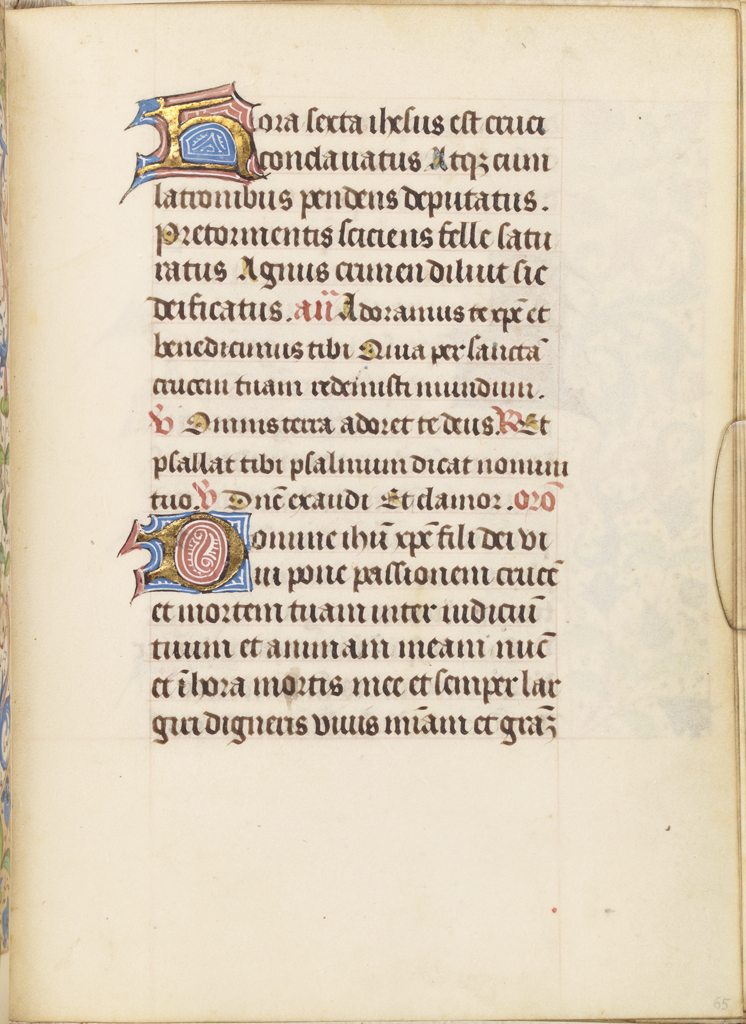 Hora sexta ihesus est cruci
conclavatus Atqꝫ cum
latronibus pendens deputatus.
Pretormentis sciciens felle satu
ratus Agnus crimen diluit sic
deificatus. an̄ Adoramus te xp̄e et
benedicimus tibi Quia per sanctā
crucem tuam redemisti mundum.
V Omnis terra adoret te deus. R Et
psallat tibi psalmum dicat nomini
tuo. V Dn̄e exaudi Et clamor. orō
Domine ihū xp̄e fili dei vi
ui pone passionem crucē
et mortem tuam inter iudiciū
tuum et animam meam nūc
et ī hora mortis mee et semper lar
giri digneris viuis mīam et graꝫ
65